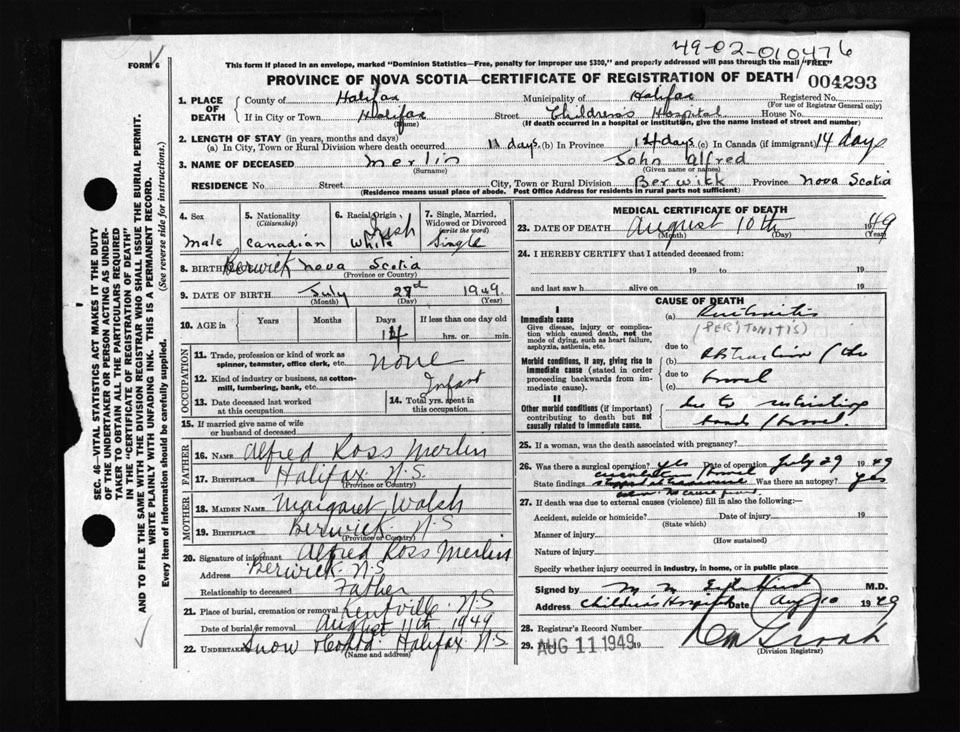 49-02-010476
FORM 6
This form if placed in an envelope, marked "Dominion Statistics—Free, penalty for improper use $300," and properly addressed will pass through the mail "FREE"
PROVINCE OF NOVA SCOTIA—CERTIFICATE OF REGISTRATION OF DEATH
004293
1. PLACE OF DEATH
County of Halifax Municipality of Halifax Registered No.
(For use of Registrar General only)
If in City or Town Halifax Street Children's Hospital House No.
(Name) (If death occurred in a hospital or institution, give the name instead of street and number)
2. LENGTH OF STAY (in years, months and days)
(a) In City, Town or Rural Division where death occurred 11 days. (b) In Province 14 days (c) In Canada (if immigrant) 14 days
3. NAME OF DECEASED Merlin John Alfred
(Surname) (Given name or names)
RESIDENCE No. Street City, Town or Rural Division Berwick Province Nova Scotia
(Residence means usual place of abode. Post Office Address for residents in rural parts not sufficient)
4. Sex Male
5. Nationality (Citizenship) Canadian
6. Racial Origin Irish White
7. Single, Married, Widowed or Divorced (write the word) Single
8. BIRTHPLACE Berwick Nova Scotia
(Province or Country)
9. DATE OF BIRTH July 27 1949.
(Month) (Day) (Year)
10. AGE in Years Months Days If less than one day old
14 hrs. or min.
OCCUPATION
11. Trade, profession or kind of work as spinner, teamster, office clerk, etc. none
12. Kind of industry or business, as cotton-mill, lumbering, bank, etc. Infant
13. Date deceased last worked at this occupation
14. Total yrs. spent in this occupation
15. If married give name of wife or husband of deceased
FATHER
16. NAME Alfred Ross Merlin
17. BIRTHPLACE Halifax N.S.
(Province or Country)
MOTHER
18. MAIDEN NAME Margaret Walsh
19. BIRTHPLACE Berwick N.S
(Province or Country)
20. Signature of informant Alfred Ross Merlin
Address Berwick N.S
Relationship to deceased Father
21. Place of burial, cremation or removal Kentville N.S
Date of burial or removal August 11th 1949
22. Undertaker Snow Halifax N.S.
(Name and address)
MEDICAL CERTIFICATE OF DEATH
23. DATE OF DEATH August 10th 1949
(Month) (Day) (Year)
24. I HEREBY CERTIFY that I attended deceased from:
19 to 19
and last saw h alive on 19
CAUSE OF DEATH
I
Immediate cause
Give disease, injury or complication which caused death, not the mode of dying, such as heart failure, asphyxia, asthenia, etc.
(a) Peritonitis
(PERITONITIS)
due to
Morbid conditions, if any, giving rise to immediate cause (stated in order proceeding backwards from immediate cause).
(b) obstruction / the
due to
(c) bowel
II
Other morbid conditions (if important) contributing to death but not causally related to immediate cause.
due to
bands / bowel.
25. If a woman, was the death associated with pregnancy?
26. Was there a surgical operation? yes Date of operation July 29 1949
State findings Was there an autopsy? yes
27. If death was due to external causes (violence) fill in also the following:—
Accident, suicide or homicide? Date of injury 19
(State which)
Manner of injury
(How sustained)
Nature of injury
Specify whether injury occurred in industry, in home, or in public place
Signed by M.D.
Address Children's Hospital Date Aug 10 1949
28. Registrar's Record Number
29. Filed AUG 11 1949 19
(Division Registrar)
SEC. 46—VITAL STATISTICS ACT MAKES IT THE DUTY OF THE UNDERTAKER OR PERSON ACTING AS UNDERTAKER TO OBTAIN ALL THE PARTICULARS REQUIRED IN THE "CERTIFICATE OF REGISTRATION OF DEATH" AND TO FILE THE SAME WITH THE DIVISION REGISTRAR WHO SHALL ISSUE THE BURIAL PERMIT.
WRITE PLAINLY WITH UNFADING INK. THIS IS A PERMANENT RECORD.
Every item of information should be carefully supplied. (See reverse side for instructions.)